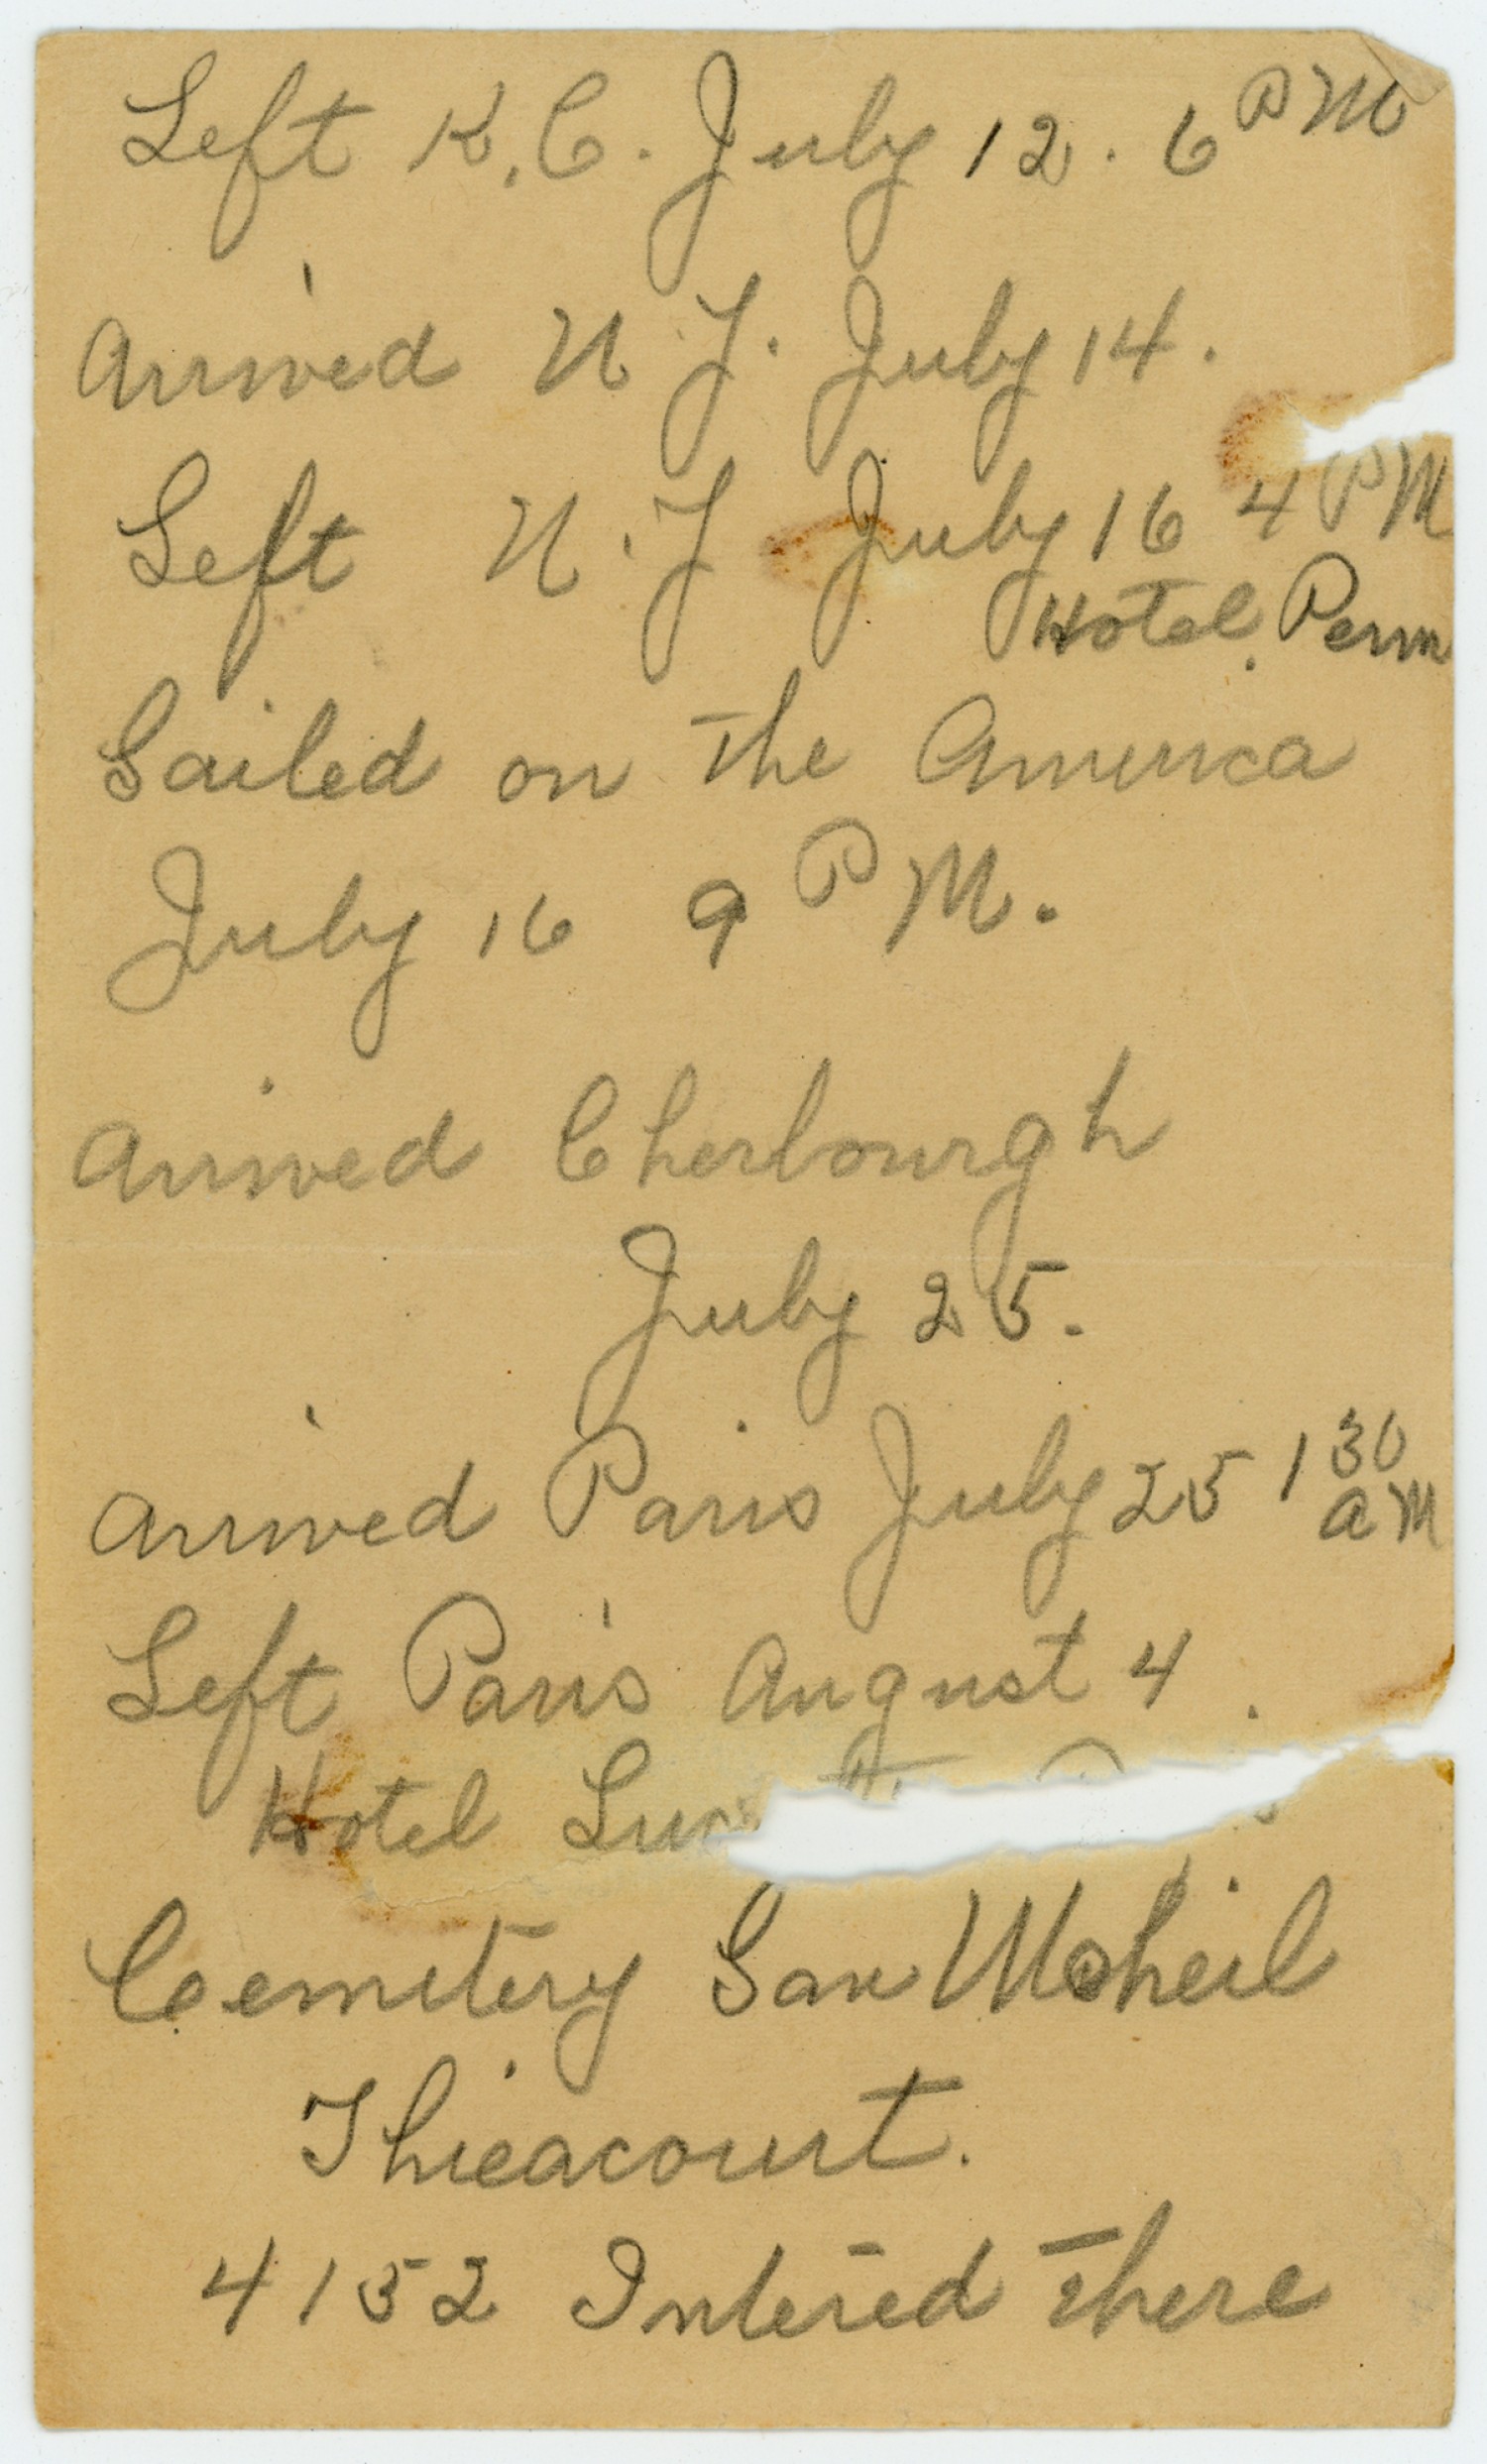 Left K.C. July 12. 6 PM
Arrived N.Y. July 14.
Left N.Y July 16 4 PM
Hotel Penn
Sailed on the America
July 16 9 PM.
Arrived Cherbourgh
July 25.
Arrived Paris July 25 1 30 AM
Left Paris August 4.
Hotel
Cemetery San Meheil
Thieacourt.
4152 Intered there